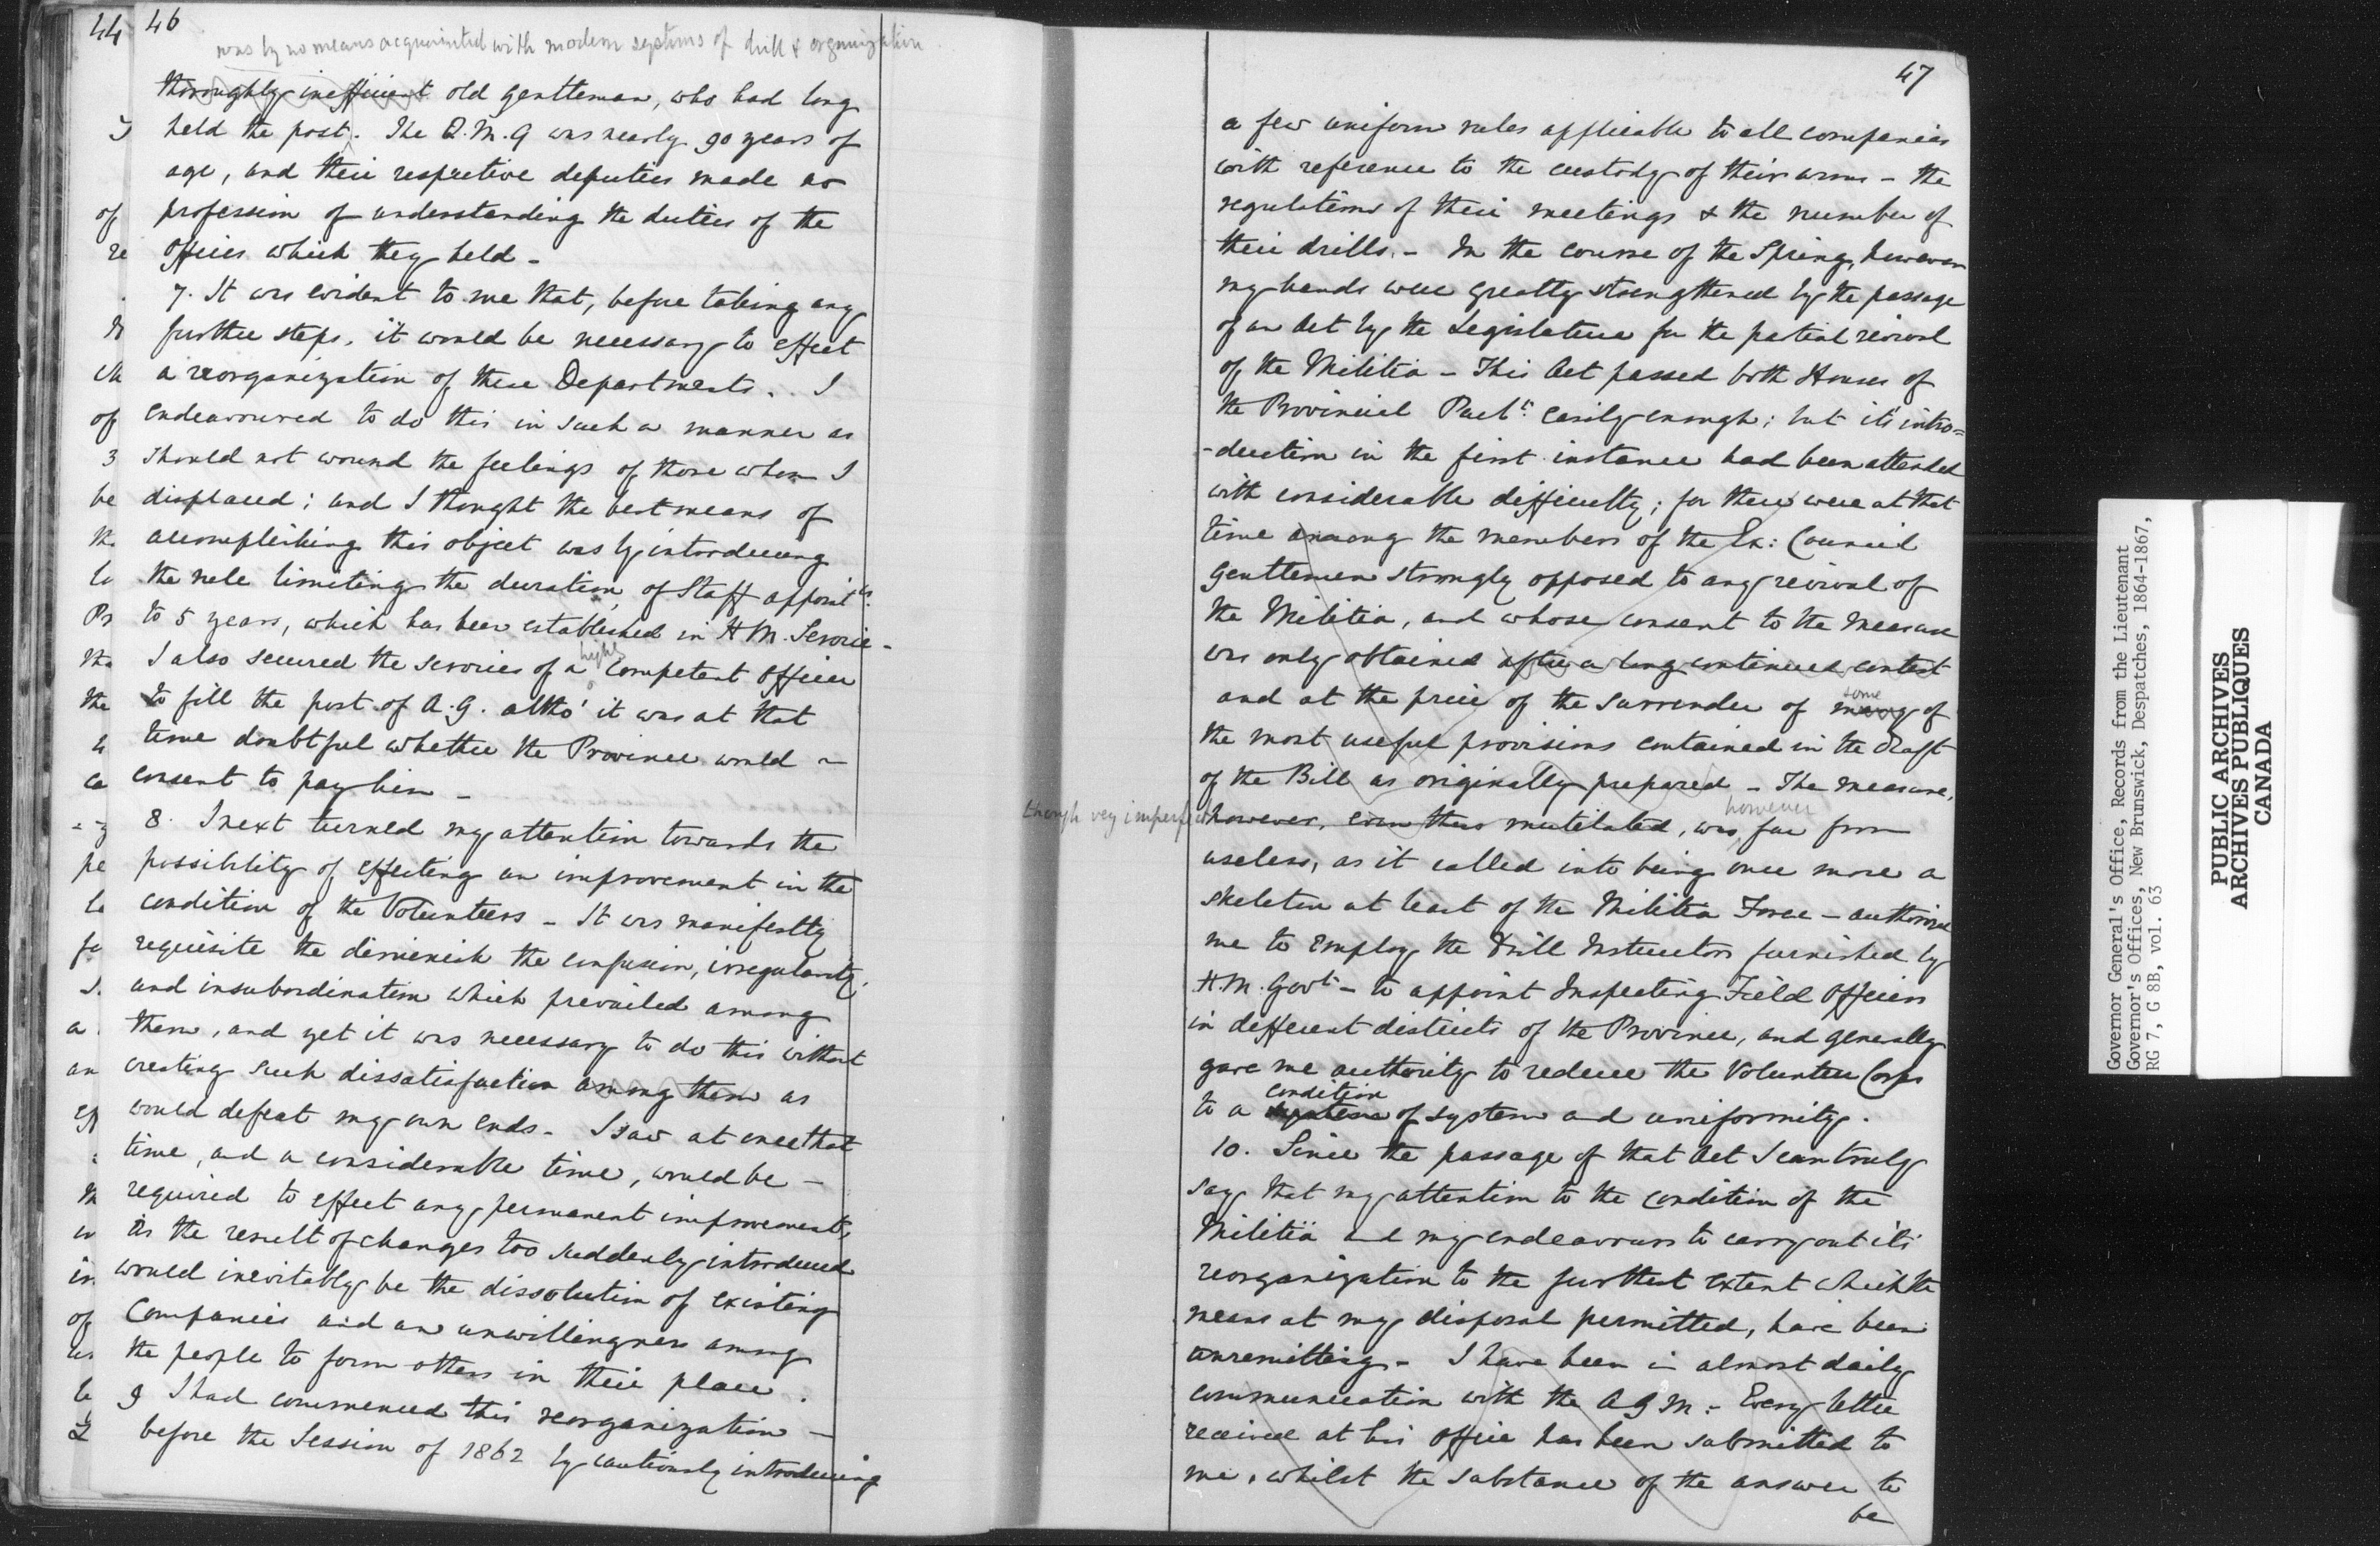 44 46
was by no means acquainted with modern systems of drill & organization
thoroughly inefficient old gentleman, who had long
held the post. The Q.M.G was nearly 90 years of
age, and their respective deputies made no
profession of understanding the duties of the
offices which they held -
7. It was evident to me that, before taking any
further steps, it would be necessary to effect
a reorganization of these Departments. I
endeavoured to do this in such a manner as
should not wound the feelings of those whom I
displaced; and I thought the best means of
accomplishing this object was by introducing
the rule limiting the duration of Staff appointts.
to 5 years, which has been established in H M. Service -
highly
I also secured the services of a competent officer
to fill the post of A.G. altho' it was at that
time doubtful whether the Province would
consent to pay him -
8. I next turned my attention towards the
possibility of effecting an improvement in the
condition of the Volunteers - It was manifestly
requisite the diminish the confusion, irregularity,
and insubordination which prevailed among
them, and yet it was necessary to do this without
creating such dissatisfaction among them as
would defeat my own ends - I saw at once that
time, and a considerable time, would be -
required to effect any permanent improvement,
as the result of changes too suddenly introduced
would inevitably be the dissolution of existing
Companies and an unwillingness among
the people to form others in their place.
9 I had commenced this reorganization -
before the Session of 1862 by cautiously introducing
47
a few uniform rules applicable to all companies
with reference to the custody of their arms - the
regulations of their meetings & the number of
their drills. - In the course of the Spring, however
my hands were greatly strengthened by the passage
of an Act by the Legislature for the partial revival
of the Militia - This Act passed both Houses of
the Provincial Parlt. easily enough; but it's intro=
-duction in the first instance had been attended
with considerable difficulty; for there were at that
time among the members of the Ex: Council
gentlemen strongly opposed to any revival of
the Militia, and whose consent to the measure
was only obtained after a long continued contest
some
and at the price of the surrender of many of
the most useful provisions contained in the draft
of the Bill as originally prepared - The measure,
though very imperfect
however
however, even thus mutilated, was far from
useless, as it called into being once more a
skeleton at least of the Militia Force - authorized
me to employ the Drill Instructors furnished by
H.M. Govt - to appoint Inspecting Field Officers
in different districts of the Province, and generally
gave me authority to reduce the Volunteer Corps
condition
to a system of system and uniformity.
10. Since the passage of that Act I can truly
say that my attention to the condition of the
Militia and my endeavours to carry out it's
reorganization to the furthest extent which the
means at my disposal permitted, have been
unremitting - I have been in almost daily
communication with the A G M: - Every letter
received at his office has been submitted to
me, whilst the substance of the answer to
be
Governor General's Office, Records from the Lieutenant
Governor's Offices, New Brunswick, Despatches, 1864-1867,
RG 7, G 8B, vol. 63
PUBLIC ARCHIVES
ARCHIVES PUBLIQUES
CANADA